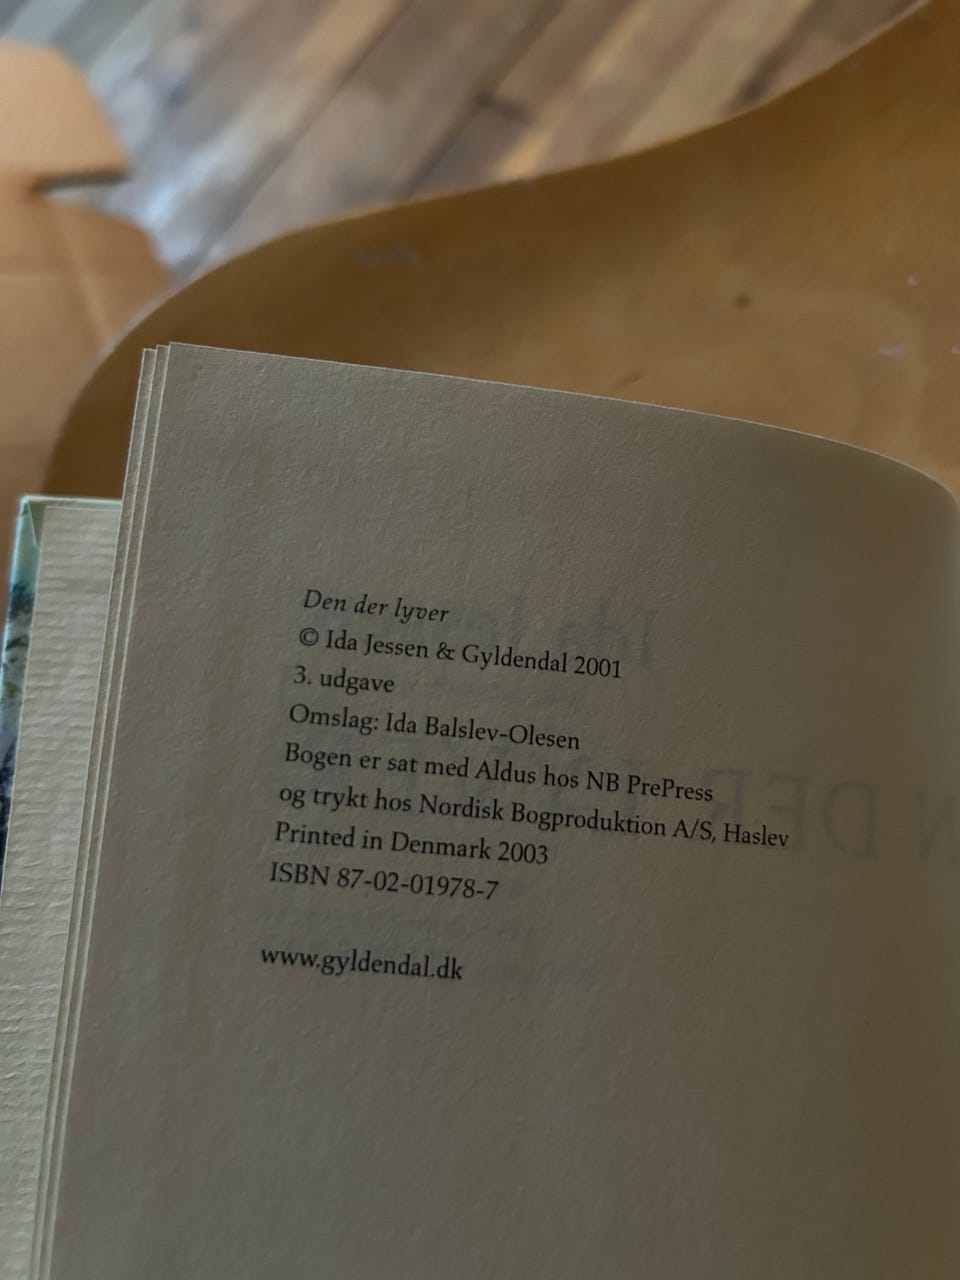 Den der lyver
© Ida Jessen & Gyldendal 2001
3. udgave
Omslag: Ida Balslev-Olesen
Bogen er sat med Aldus hos NB PrePress
og trykt hos Nordisk Bogproduktion A/S, Haslev
Printed in Denmark 2003
ISBN 87-02-01978-7
www.gyldendal.dk